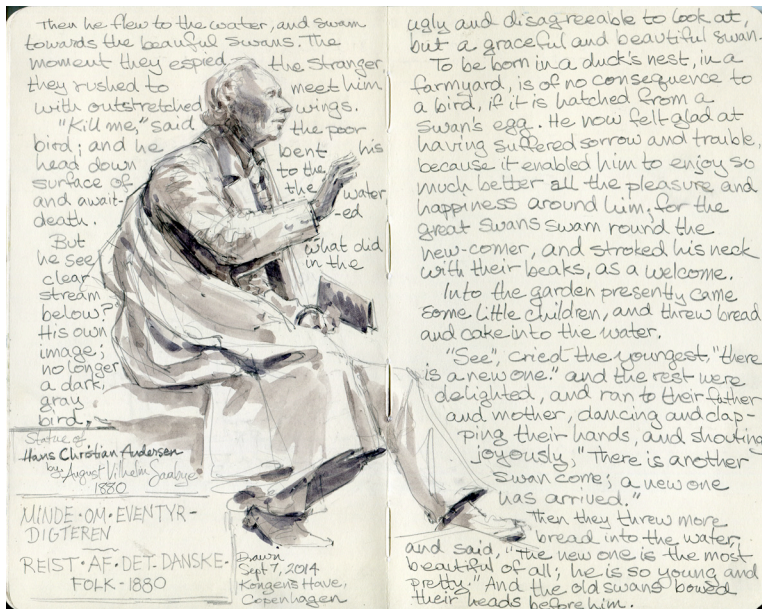 Then he flew to the water, and swam
towards the beauful swans. The
moment they espied the stranger,
they rushed to meet him
with outstretched wings.
"Kill me," said the poor
bird; and he bent his
head down to the
surface of the water
and await-ed
death.
But what did
he see in the
clear
stream
below?
His own
image;
no longer
a dark,
gray
bird,
Statue of
Hans Christian Andersen
by August Vilhelm Saabye
1880
MINDE·OM·EVENTYR-
DIGTEREN
REIST·AF·DET·DANSKE·
FOLK-1880
Drawn
Sept 7, 2014
Kongens Have,
Copenhagen
ugly and disagreeable to look at,
but a graceful and beautiful swan.
To be born in a duck's nest, in a
farmyard, is of no consequence to
a bird, if it is hatched from a
swan's egg. He now felt glad at
having suffered sorrow and trouble,
because it enabled him to enjoy so
much better all the pleasure and
happiness around him; for the
great swans swam round the
new-comer, and stroked his neck
with their beaks, as a welcome.
Into the garden presently came
some little children, and threw bread
and cake into the water.
"See", cried the youngest, "there
is a new one." and the rest were
delighted, and ran to their father
and mother, dancing and clap-
ping their hands, and shouting
joyously, "There is another
swan come; a new one
has arrived."
Then they threw more
bread into the water
and said, "The new one is the most
beautiful of all; he is so young and
pretty." And the old swans bowed
their heads before him.